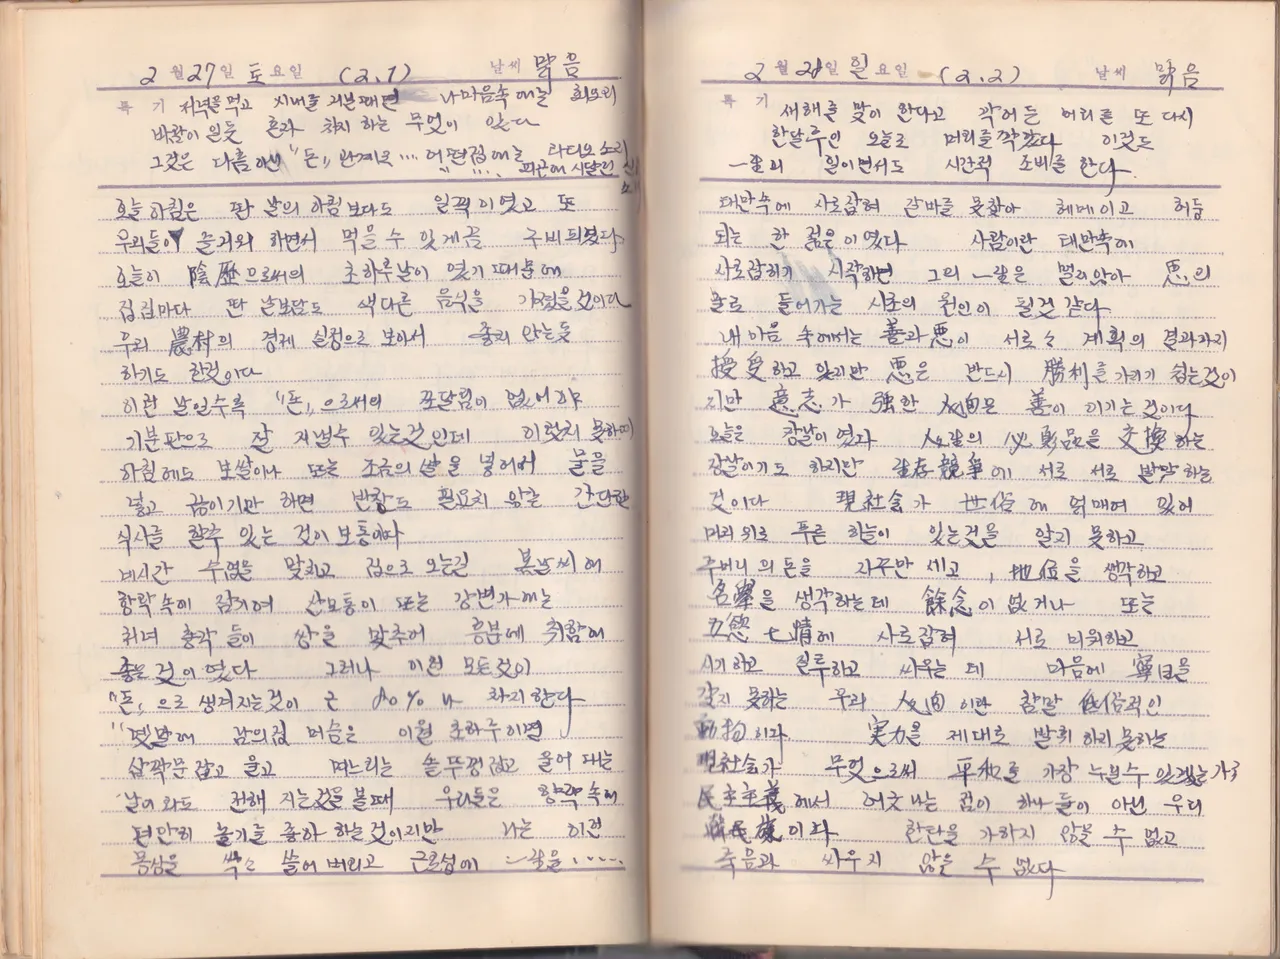 2월 27일 토요일 (2.1) 날씨 맑음
특기 저녁을 먹고 시내를 거닐때면 나 마음속에는 회오리
바람이 일듯 혼자 차지하는 무엇이 있다
그것은 다름아닌 "돈" 관계로 … 어떤집에는 라디오 소리
피곤에 시달린
오늘 아침은 딴 날의 아침보다도 일찍이였고 또
우리들이 즐거워 하면서 먹을 수 있게끔 구비되였다
오늘이 陰歷으로써의 초하루날이 였기 때문에
집집마다 딴 날보담도 색다른 음식을 가졌을것이다
우리 農村의 경제 실정으로 보아서 좋지 않는듯
하기도 한것이다
이런 날일수록 "돈"으로써의 쪼달림이 없어야
기분판으로 잘 지낼수 있는것인데 이렇지 못하며
아침에도 보쌀이나 또는 조금의 쌀을 넣어서 물을
넣고 끓이기만 하면 반찬도 필요치 않은 간단한
식사를 할수 있는 것이 보통이다
네시간 수업을 맞치고 집으로 오는길 봄날씨에
향락속에 잠기여 산모퉁이 또는 강변가에는
처녀 총각들이 쌍을 맞추어 흥분에 취함에
좋은것이였다 그러나 이런 모든것이
"돈"으로 생겨지는것이 근 80%나 차지한다
"옛말에 남의집 머슴은 이월 초하루이면
삽짝문잡고 울고 며느리는 솥뚜껑잡고 울어 대는
날이 와도 전해 지는것을 볼때 우리들은 향락속에
편안히 놀기를 좋아 하는것이지만 나는 이런
몽상을 싹 쓸어 버리고 근로성에 一生을 ....
2월 28일 일요일 (2.2) 날씨 맑음
특기 새해를 맞이 한다고 깍어 든 머리를 또 다시
한달루인 오늘로 머리를 깍았다 이것도
一生의 일이면서도 시간적 소비를 한다
태만속에 사로잡혀 갈바를 못찾아 헤메이고 허둥
되는 한 젊은이였다 사람이란 태만속에
사로잡히기 시작하면 그의 一生은 멀지않아 悪의
굴로 들어가는 시초의 원인이 될것 같다
내 마음 속에서는 善과 悪이 서로 수 계획의 결과까지
授受하고 있지만 悪은 반드시 勝利를 가지기 쉽는것이
지만 意志가 强한 人間은 善이 이기는것이다
오늘은 장날이였다 人生의 必需品을 交換하는
장날이기도 하지만 生存競爭에 서로 서로 발악하는
것이다 現社会가 世俗에 얽매여 있어
머리위로 푸른 하늘이 있는것을 알지 못하고
주머니의 돈을 자꾸만 세고, 地位을 생각하고
名擧을 생각하는데 餘念이 없거나 또는
五慾 七情에 사로잡혀 서로 미워하고
시기하고 질투하고 싸우는데 마음에 寧日을
갖지 못하는 우리 人间이란 참말 低俗적인
動物이다 実力을 제대로 발휘하지 못하는
現社会가 무엇으로써 平和를 가장 누릴수 있겠는가로
民主主義에서 어긋나는 점이 하나 둘이 아닌 우리
韓民族이라 한탄을 가하지 않을 수 없고
죽음과 싸우지 않을 수 없다